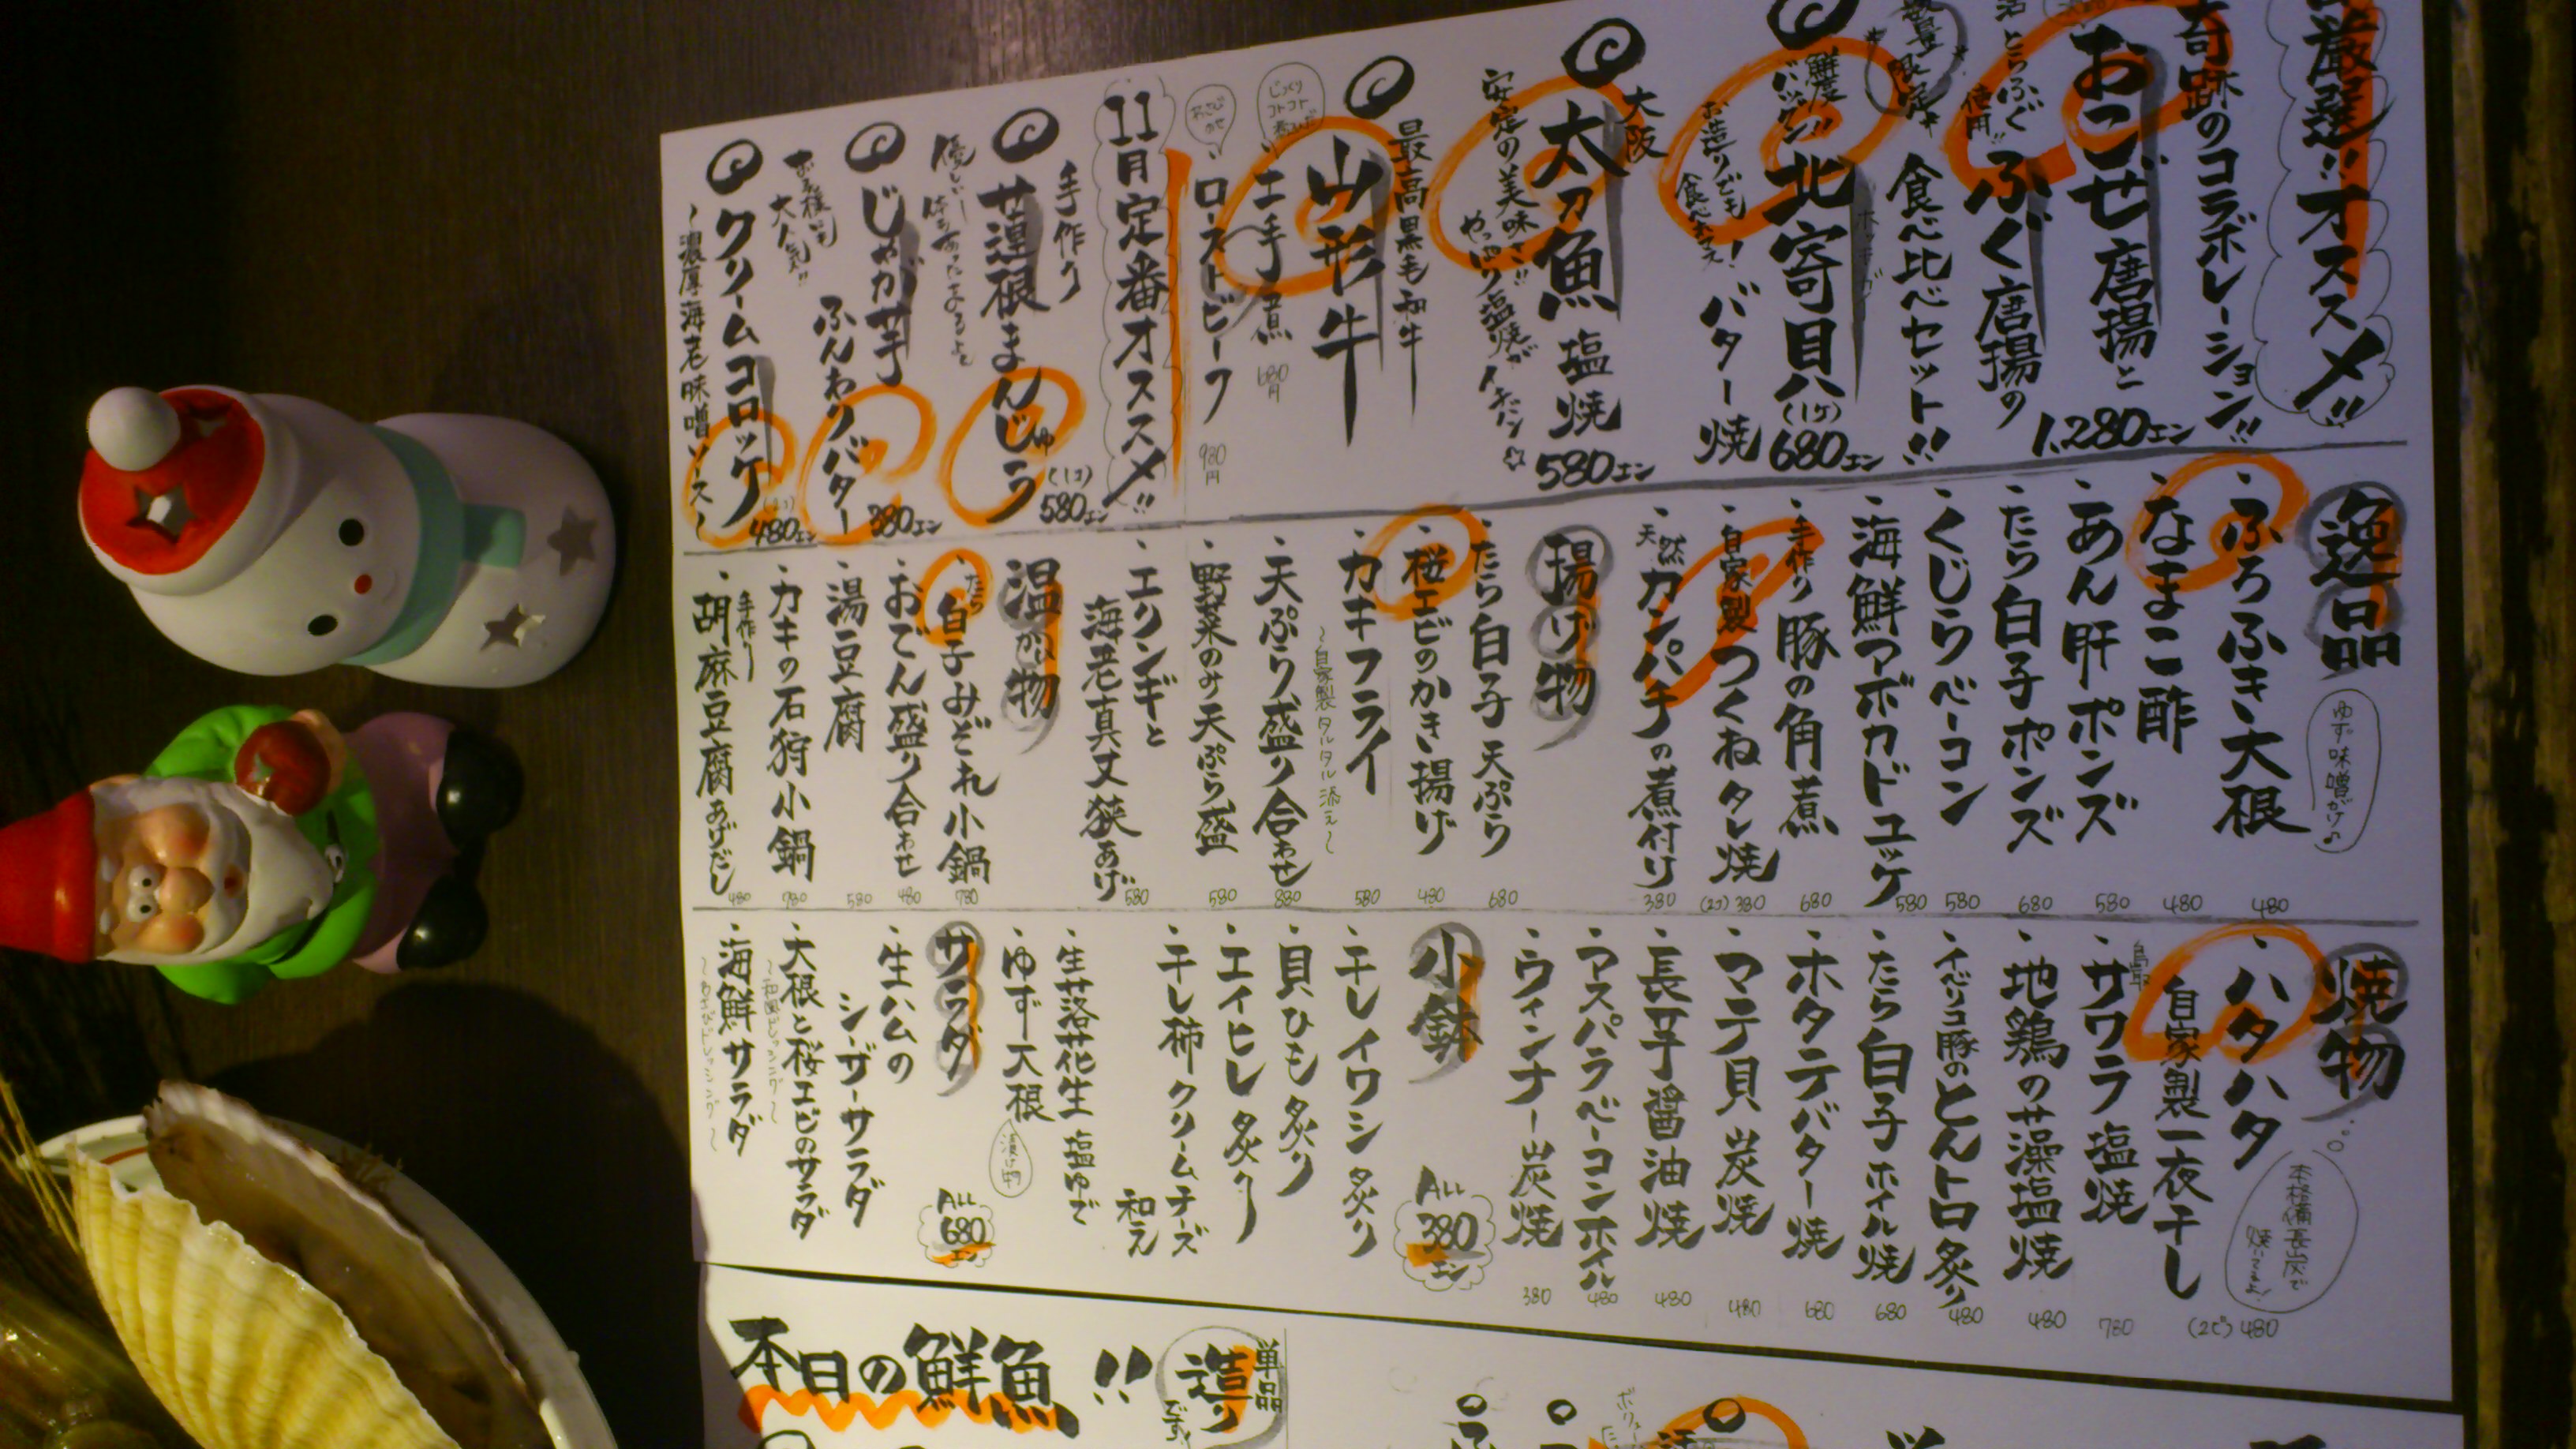 厳選!!オススメ!!
奇跡のコラボレーション!!
おこぜ唐揚と
1,280エン
活とらふぐ使用!!
ふぐ唐揚の
数量限定
食べ比べセット!!
鮮度バツグン!!
北寄貝
ホッキガイ
(1ケ)
680エン
お造りでも食べれマス!
バター焼
大阪
太刀魚
塩焼
580エン
安定の美味さ!!
やっぱり塩焼がイチバン☆
最高黒毛和牛
山形牛
じっくりコトコト
土手煮
680円
ローストビーフ
980円
11月定番オススメ!!
手作り
蓮根まんじゅう
(1コ)
580エン
じゃが芋
ふんわりバター
380エン
お子様にも大人気!!
クリームコロッケ
480エン
~濃厚海老味噌ソース~
逸品
ゆず味噌がけ♪
・ふろふき大根
480
・なまこ酢
480
・あん肝ポンズ
580
・たら白子ポンズ
680
・くじらベーコン
580
・海鮮アボカドユッケ
580
・手作り豚の角煮
680
・自家製つくねタレ焼
(2コ)380
・天然カンパチの煮付け
380
揚げ物
・たら白子天ぷら
680
・桜エビのかき揚げ
480
・カキフライ
580
~自家製タルタル添え~
・天ぷら盛り合わせ
880
・野菜のみ天ぷら盛
580
・エリンギと
海老真丈挟あげ
580
温か物
・たら白子みぞれ小鍋
780
・おでん盛り合わせ
480
・湯豆腐
580
・カキの石狩小鍋
780
・手作り胡麻豆腐あげだし
480
焼物
本格備長炭で焼いてるよ!
・ハタハタ
自家製一夜干し
(2ビ)480
・鳥取サワラ塩焼
780
・地鶏の藻塩焼
480
・イベリコ豚のとんトロ炙り
480
・たら白子ホイル焼
680
・ホタテバター焼
680
・マテ貝炭焼
480
・長芋醤油焼
480
・アスパラベーコンホイル
480
・ウィンナー炭焼
380
小鉢
ALL
380
エン
・干しイワシ炙り
・貝ひも炙り
・エイヒレ炙り
・干し柿クリームチーズ
和え
・生落花生塩ゆで
・ゆず大根
漬け物
サラダ
ALL
680
エン
・生ハムの
シーザーサラダ
・大根と桜エビのサラダ
・海鮮サラダ
本日の鮮魚!!
造り
単品
です!